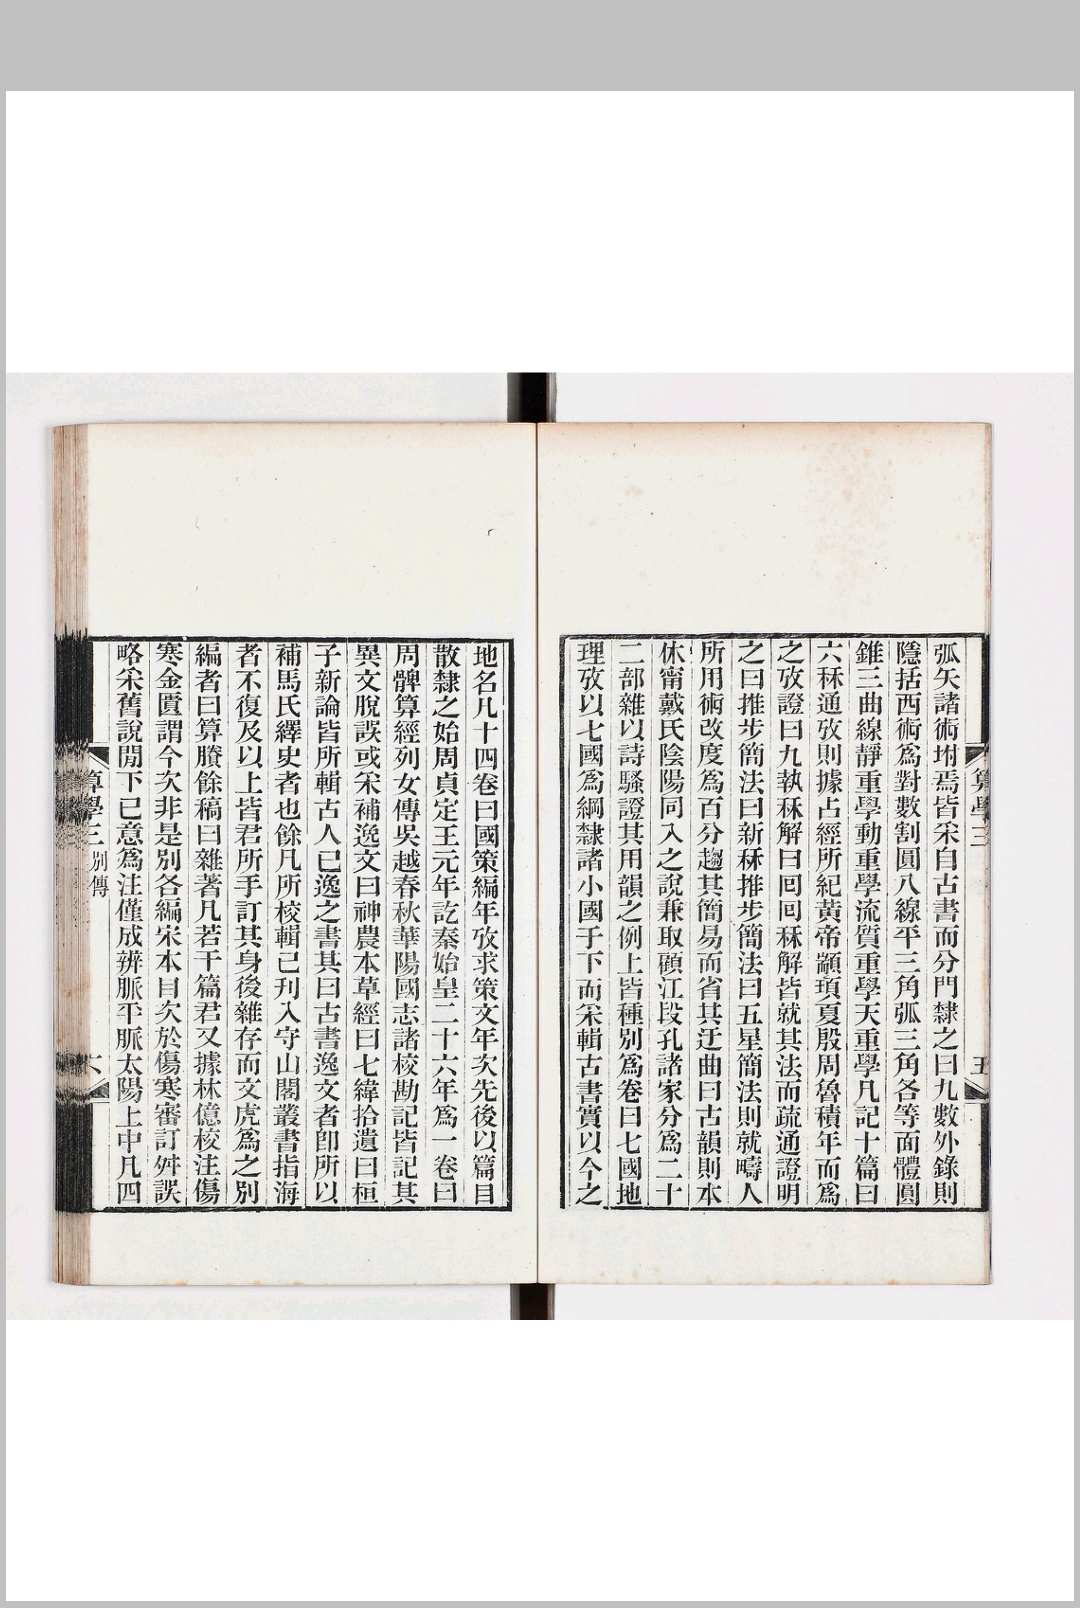 弧矢諸術坿焉皆采自古書而分門隸之曰九數外錄則
隱括西術爲對數割圓八線平三角弧三角各等面體圓
錐三曲線靜重學動重學流質重學天重學凡記十篇曰
六秝通攷則據占經所紀黃帝顓頊夏殷周魯積年而爲
之攷證曰九執秝解曰回回秝解皆就其法而疏通證明
之曰推步簡法曰新秝推步簡法曰五星簡法則就疇人
所用術改度爲百分趨其簡易而省其迂曲曰古韻則本
休甯戴氏陰陽同入之說兼取顧江段孔諸家分爲二十
二部雜以詩騷證其用韻之例上皆種別爲卷曰七國地
理攷以七國爲綱隸諸小國于下而采輯古書實以今之
算學三
五
地名凡十四卷曰國策編年攷求策文年次先後以篇目
散隸之始周貞定王元年訖秦始皇二十六年爲一卷曰
周髀算經列女傳吳越春秋華陽國志諸校勘記皆記其
異文脫誤或采補逸文曰神農本草經曰七緯拾遺曰桓
子新論皆所輯古人已逸之書其曰古書逸文者卽所以
補馬氏繹史者也餘凡所校輯已刊入守山閣叢書指海
者不復及以上皆君所手訂其身後雜存而文虎爲之別
編者曰算賸餘稿曰雜著凡若干篇君又據林億校注傷
寒金匱謂今次非是別各編宋本目次於傷寒審訂舛誤
略采舊說閒下已意爲注僅成辨脈平脈太陽上中凡四
算學三 別傳
六